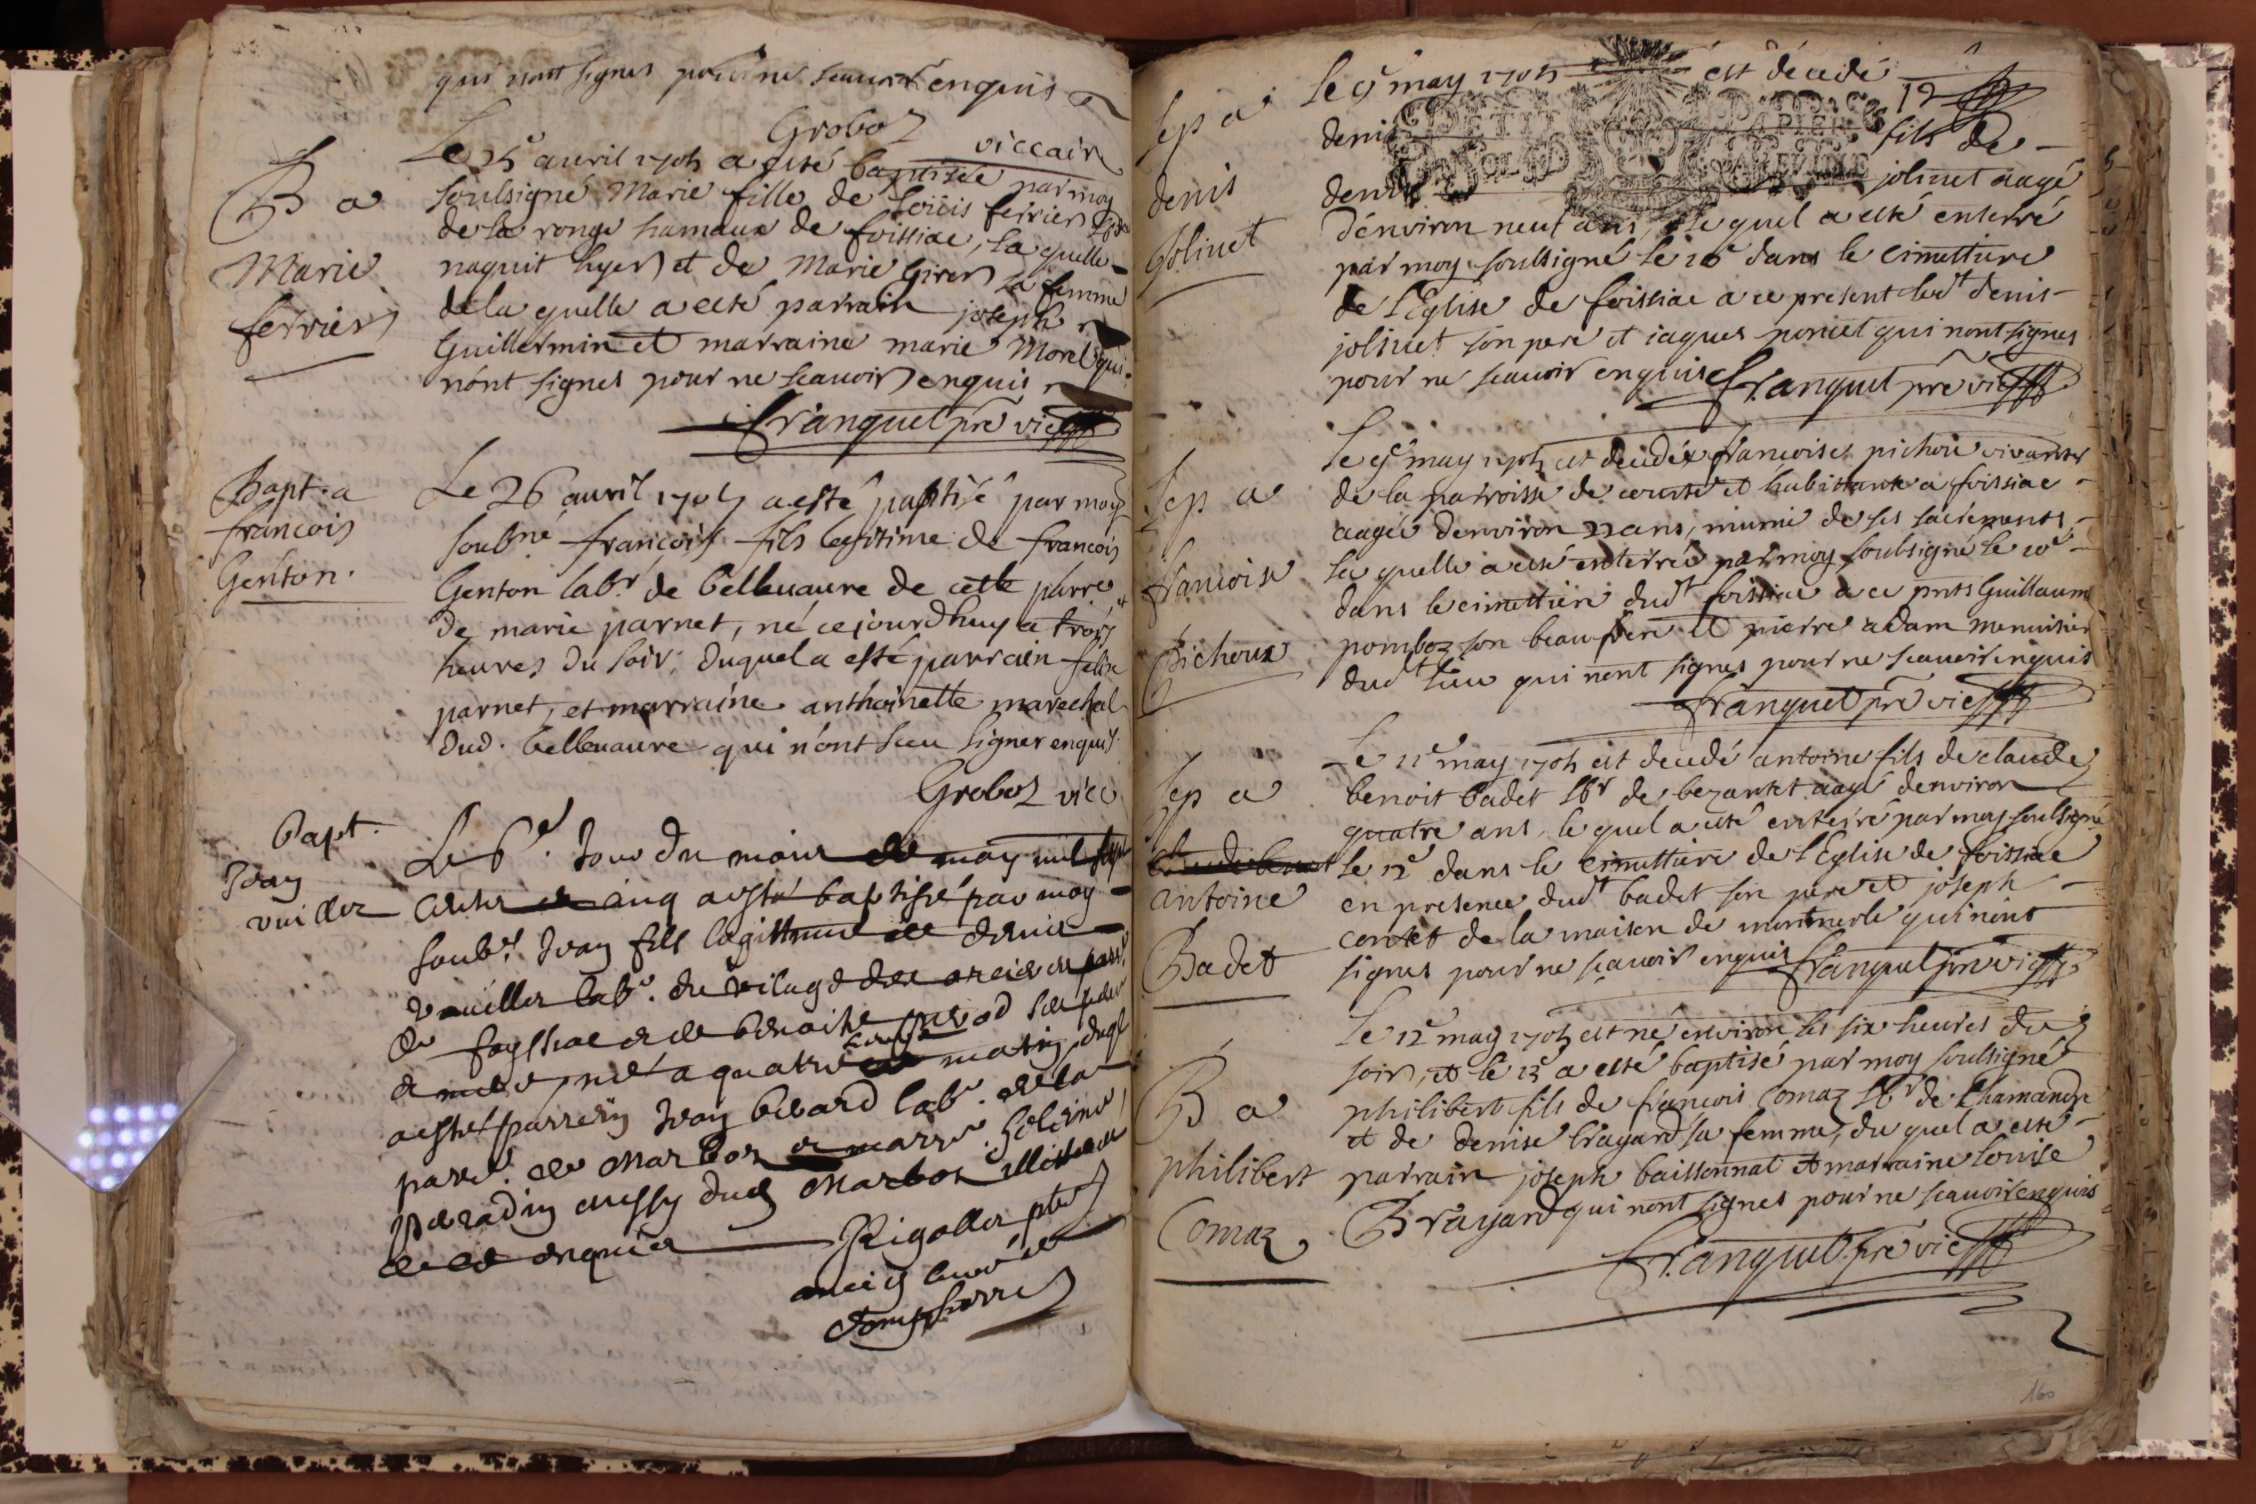 qui nont signes pour ne scauoir enquis
Groboz viccair
B a
Marie
ferrier
Le 25e auril 1705 a esté baptisée par moy
soulsigné Marie fille de Loüis ferrier
de la ronge hameaux de foissiac, la quelle
naquit hyer et de Marie Girer sa femme
de la quelle a esté parrain joseph
Guillermin et marraine marie Morel qui
nónt signes pour ne scauoir enquis
franquet pre vic
Bapt. a
francois
Genton.
Le 26 auril 1705 a esté paptisé par moy
soubné francois fils legitime de francois
Genton labr de belleuaure de cette parre et
de marie parnet, né cejourdhuy a trois
heures du soir; duquel a esté parrain felix
parnet, et marraine anthoinette marechal
dud. belleuaure qui n'ont sceu signer enquis
Groboz vicc
Bapt.
Jean
vuiller
Le 6e. Jour du mois de may mil sept
cents et cinq a esté baptisé par moy
soubs. Jean fils legittime de denis
vuiller labr. du vilage des
de foyssiac et de benoiste
heures
né a quatre de matin duql
a esté parrein Jean berard labr. de la
parr. de Marboz et marre.
peradin aussy dud Marboz illitere
de ce enquis Rigollet ptre
ancien curé de
dompierre
Sep a
denis
Joliuet
Le 9e may 1705 est décedé
12
denis fils de
denis joliuet aagé
dénuiron neuf ans, le quel a esté enterré
par moy soulsigné le 10e dans le cimettiere
de l'Eglise de foissiac a ce present ledt denis
joliuet son pere et iaques poncet qui nont signes
pour ne scauoir enquis franquet pre vic
Sep a
francoise
Pichoux
Le 9e may 1705 est decedée francoise pichoux viuante
de la parroisse de et habittante a foissiac
aagée denviron 22 ans, munie de ses sacrements
la quelle a esté enterrée par moy soubsigné le 10e
dans le cimettiere dudt foissiac a ce pnts Guillaume
pomboz son beaufrere et pierre adam menuisier
dudt lieu qui nont signes pour ne scauoir enquis
franquet pre vic
Sep a
antoine
Badet
Le 11e may 1705 est decedé antoine fils de claude
benoit badet lbr de bezantet aagé denviron
quatre ans, le quel a esté enterré par moy soulsigné
le 12e dans le cimettiere de l'Eglise de foissiac
en presence dudt badet son pere et joseph
contet de la maison de montmerle qui nont
signes pour ne sçauoir enquis franquet pre vic
B a
philibert
Comaz
Le 12e may 1705 est né enuiron les six heures du
soir, et le 13e a esté baptisé par moy soulsigné
philibert fils de françois Comaz lbr de Chamandre
et de denise brayard sa femme, du quel a esté
parrain joseph baissonnat et marraine Louise
Brayard qui nont signes pour ne scauoir enquis
franquet pre vic
160